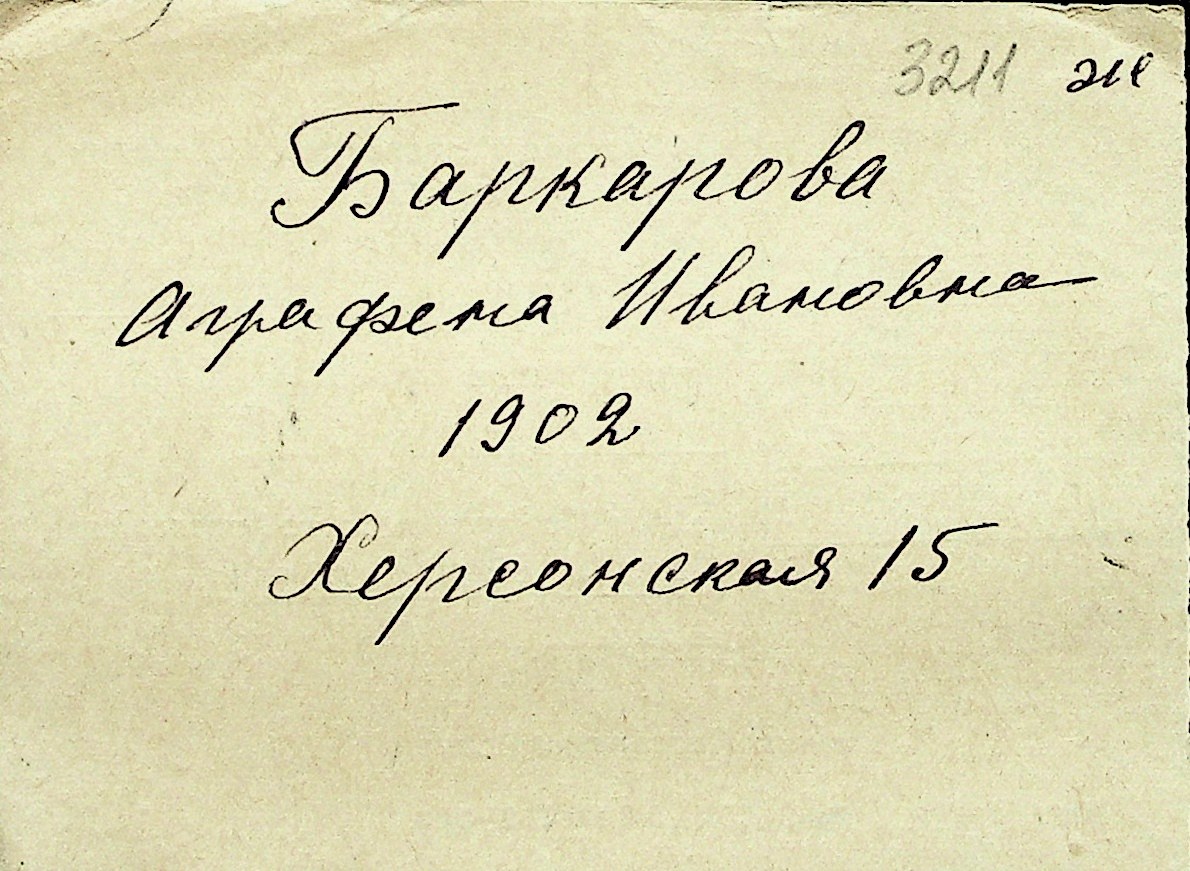 3211 ж
Баркарова
Аграфена Ивановна
1902
Херсонская 15